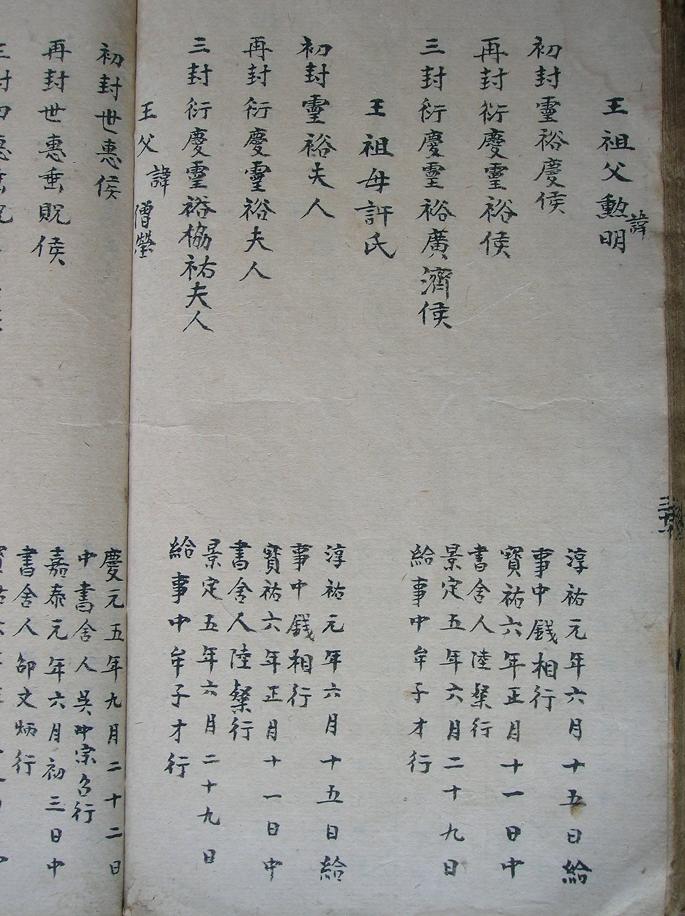 王祖父諱勲明
初封𤫊裕慶侯
淳祐元年六月十五日給
事中錢相行
再封衍慶𤫊裕侯
寳祐六年正月十一日中
書舍人陸粲行
三封衍慶𤫊裕廣濟侯
景定五年六月二十九日
給事中牟子才行
王祖母許氏
初封𤫊裕夫人
淳祐元年六月十五日給
事中錢相行
再封衍慶𤫊裕夫人
寳祐六年正月十一日中
書舍人陸粲行
三封衍慶𤫊裕協祐夫人
景定五年六月二十九日
給事中牟子才行
王父諱僧瑩
初封世惠侯
慶元五年九月二十二日
中書舍人吳宗行
再封世惠垂貺侯
嘉泰元年六月初三日中
書舍人邵文炳行
三封